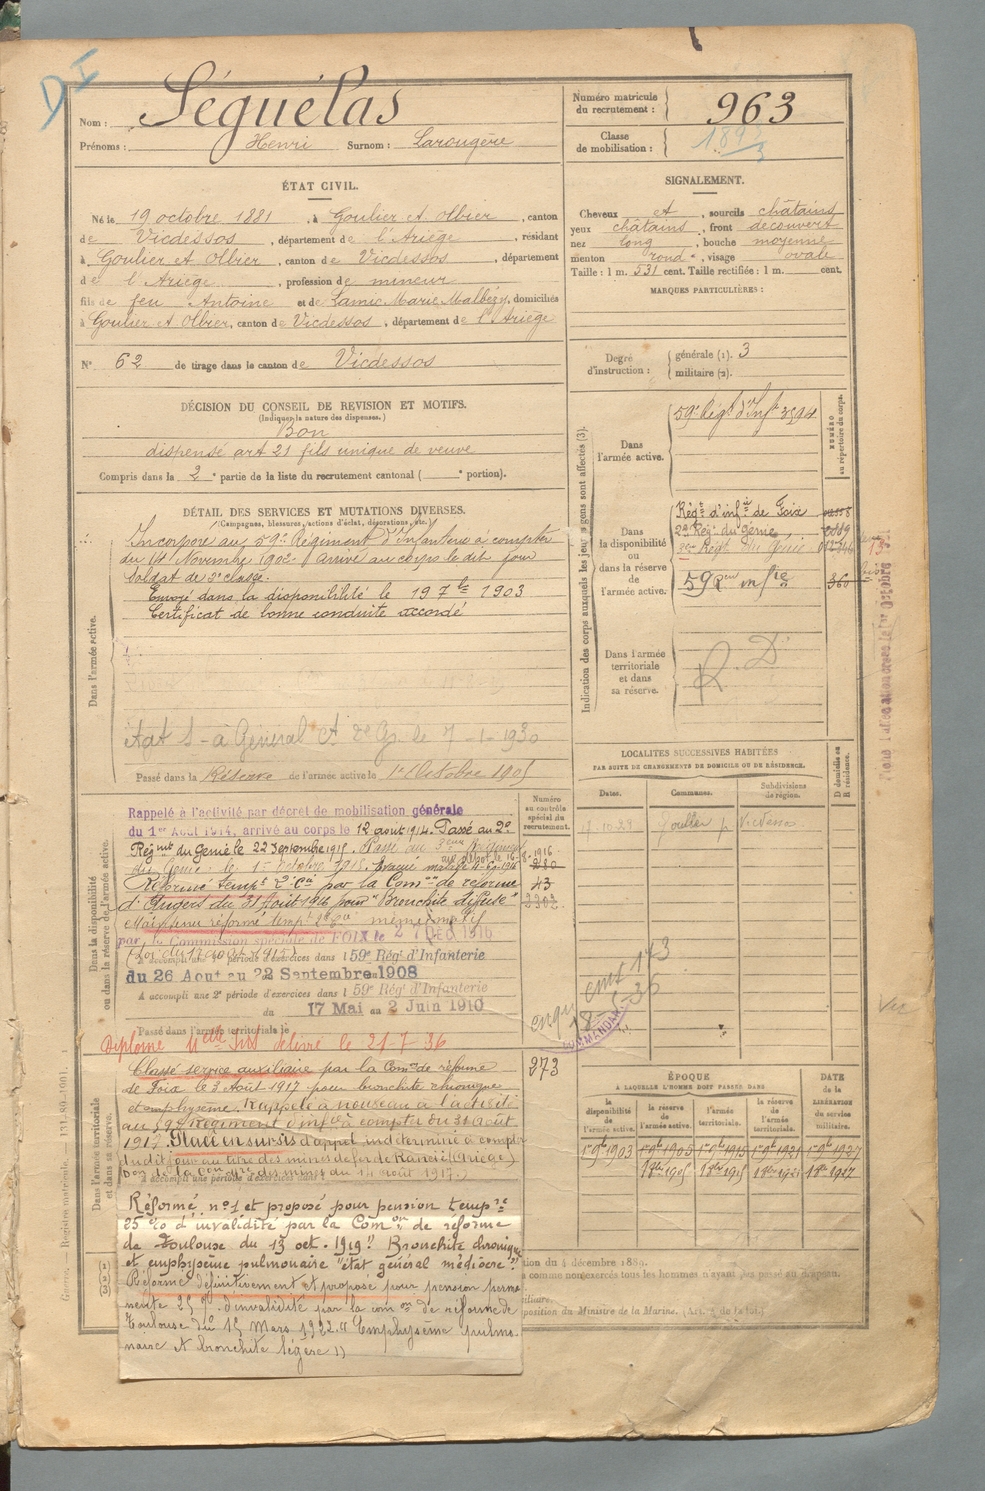 D I
Nom : Séguélas
Prénoms : Henri Surnom : Larougère
Numéro matricule du recrutement : 963
Classe de mobilisation :
ÉTAT CIVIL.
Né le 19 octobre 1881, à Goulier et Olbier, canton
de Vicdessos, département de l'Ariège, résidant
à Goulier et Olbier, canton de Vicdessos, département
de l'Ariège, profession de mineur
fils de feu Antoine et de Lamic Marie Malbézy, domiciliés
à Goulier et Olbier, canton de Vicdessos, département de l'Ariège
N° 62 de tirage dans le canton de Vicdessos
SIGNALEMENT.
Cheveux et, sourcils châtains
yeux châtains, front découvert
nez long, bouche moyenne
menton rond, visage ovale
Taille : 1 m. 531 cent. Taille rectifiée : 1 m. cent.
MARQUES PARTICULIÈRES :
Degré d'instruction : générale (1). 3
militaire (2).
DÉCISION DU CONSEIL DE REVISION ET MOTIFS.
(Indiquer la nature des dispenses.)
Bon
dispensé art 21 fils unique de veuve
Compris dans la 2e partie de la liste du recrutement cantonal ( e portion).
DÉTAIL DES SERVICES ET MUTATIONS DIVERSES.
(Campagnes, blessures, actions d'éclat, décorations, etc.)
Dans l'armée active.
Incorporé au 59e Régiment d'Infanterie à compter
du 14 Novembre 1902 arrivé au corps le dit jour
Soldat de 2e classe.
Envoyé dans la disponibilité le 19 7bre 1903
Certificat de bonne conduite accordé
le 7-1-1930
Passé dans la Réserve de l'armée active le 1er Octobre 1905
Indication des corps auxquels les jeunes gens sont affectés (3).
NUMÉRO au répertoire du corps.
Dans l'armée active.
59e Régt d'Infie 3594
Dans la disponibilité ou dans la réserve de l'armée active.
Régt d'infie de Foix
2e Régt du génie
3e Régt du Génie
59 R infie 360
Dans l'armée territoriale et dans sa réserve.
R. D
LOCALITÉS SUCCESSIVES HABITÉES
PAR SUITE DE CHANGEMENTS DE DOMICILE OU DE RÉSIDENCE.
Dates. Communes. Subdivisions de région. D domicile ou R résidence.
Goulier p Vicdessos
Dans la disponibilité ou dans la réserve de l'armée active.
Numéro au contrôle spécial du recrutement.
Rappelé à l'activité par décret de mobilisation générale
du 1er Août 1914, arrivé au corps le 12 août 1914. Passé au 2e
Régmt du Génie le 22 Septembre 1915. Passé au 3eme Régiment
du Génie le 1er octobre 1915. Evacué malade
Réformé tempre 2e Cie par la Comon de réforme 43
d'Angers du 31 Août 1916 pour "Bronchite diffuse"
Maintenu réformé tempre même motif
par la Commission spéciale de FOIX le 27 DEC 1916
(Loi du 17 août 1915)
A accompli une période d'exercices dans l 59e Régt d'Infanterie
du 26 Aout au 22 Septembre 1908
A accompli une 2e période d'exercices dans l 59e Régt d'Infanterie
du 17 Mai au 2 Juin 1910
Passé dans l'armée territoriale le
Diplome délivré le 21-7-36
Dans l'armée territoriale et dans sa réserve.
Classé service auxiliaire par la Comon de réforme 273
de Foix le 3 Août 1917 pour bronchite chronique
et emphysème. Rappelé à nouveau à l'activité
au 59e Régiment d'infie à compter du 31 août
1917. Placé en sursis d'appel indéterminé à compter
dudit jour au titre des mines de fer de Rancié (Ariège)
des mines du 14 août 1917.)
Réformé n° 1 et proposé pour pension tempre
25 % d'invalidité par la Comon de réforme
de Toulouse du 13 oct. 1919 "Bronchite chronique
et emphysème pulmonaire "état général médiocre".
Réformé définitivement et proposé pour pension perma
nente 25 % d'invalidité par la comon de réforme de
Toulouse du 15 Mars 1922 "Emphysème pulmo-
naire et bronchite légère"
ÉPOQUE
À LAQUELLE L'HOMME DOIT PASSER DANS
la disponibilité de l'armée active. la réserve de l'armée active. l'armée territoriale. la réserve de l'armée territoriale.
DATE de la LIBÉRATION du service militaire.
tion du 4 décembre 1889.
a comme non exercés tous les hommes n'ayant pas passé au drapeau.
xiliaire.
position du Ministre de la Marine. (Art. de la loi.)